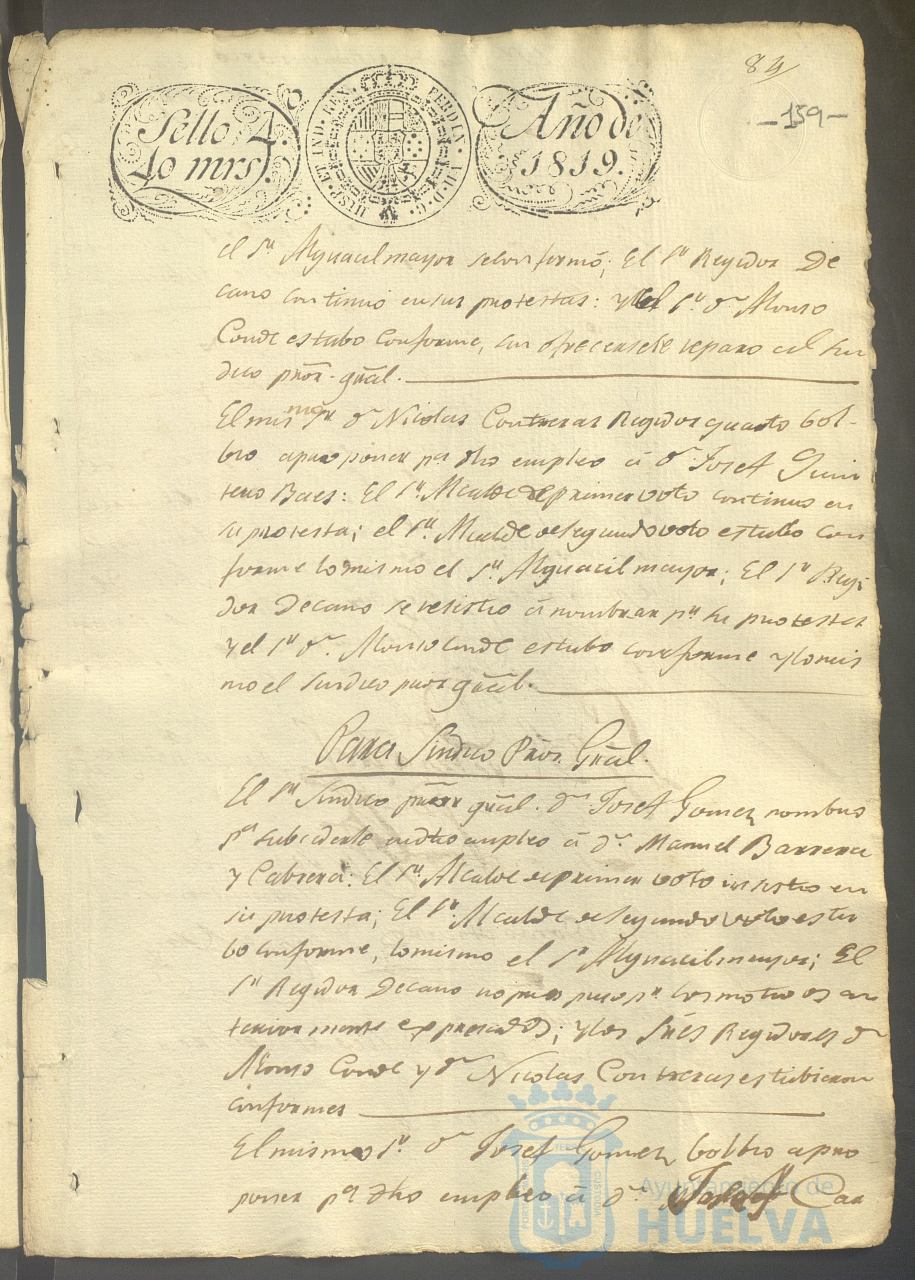 84
-159-
Sello 4.
40 mrs.
HISP. ET IND. REX. FERDIN. VII. D. G.
Año de
1819.
el Sr. Alguacil mayor se conformó; El Sr. Regidor De
cano continuó en sus protestas: y el Sr. Dn. Alonso
Conde estubo conforme, sin ofrecersele reparo al Sin
dico Prõr. grãl.
El mismo Sr. Dn. Nicolas Contreras Regidor quarto bol-
bio a proponer pa. dho empleo á Dn. Josef Quin
tero Baes: El Sr. Alcalde de primer voto continuo en
su protesta; el Sr. Alcalde de segundo voto estubo con
forme lo mismo el Sr. Alguacil mayor; El Sr. Regi
dor Decano se resistio á nombrar pr. su protesta
y el Sr. Dn. Alonso Conde estubo conforme y lo mis
mo el Sindico Prõr grãl.
Para Sindico Prõr. Grãl.
El Sr. Sindico prõr grãl. Dn. Josef Gomez nombró
pa. subcederle en dho empleo á Dn. Manuel Barrera
y Cabrera: El Sr. Alcalde de primer voto insistio en
su protesta; El Sr. Alcalde de segundo voto estu
bo conforme, lo mismo el Sr. Alguacil mayor; El
Sr. Regidor Decano no pr. los motivos an
teriormente expresados; y los Sres Regidores Dn.
Alonso Conde y Dn. Nicolas Contreras estubieron
conformes
El mismo Sr. Dn. Josef Gomez bolbio a pro
poner pa. dho empleo á Dn. Josef Car
Ayuntamiento de
HUELVA